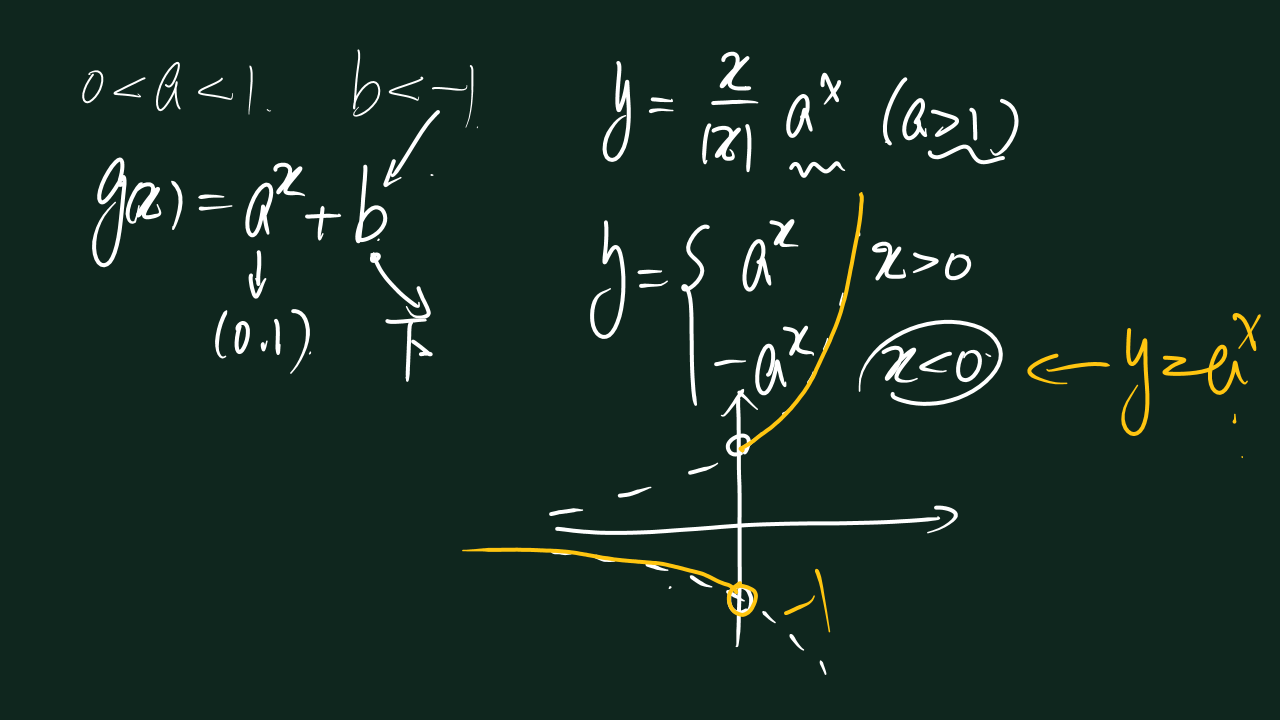 0<a<1. b<-1.
g(x)=a^x+b
(0.1) 下
y=x/|x| a^x (a>1)
y={ a^x x>0
-a^x x<0 ← y=a^x
-1